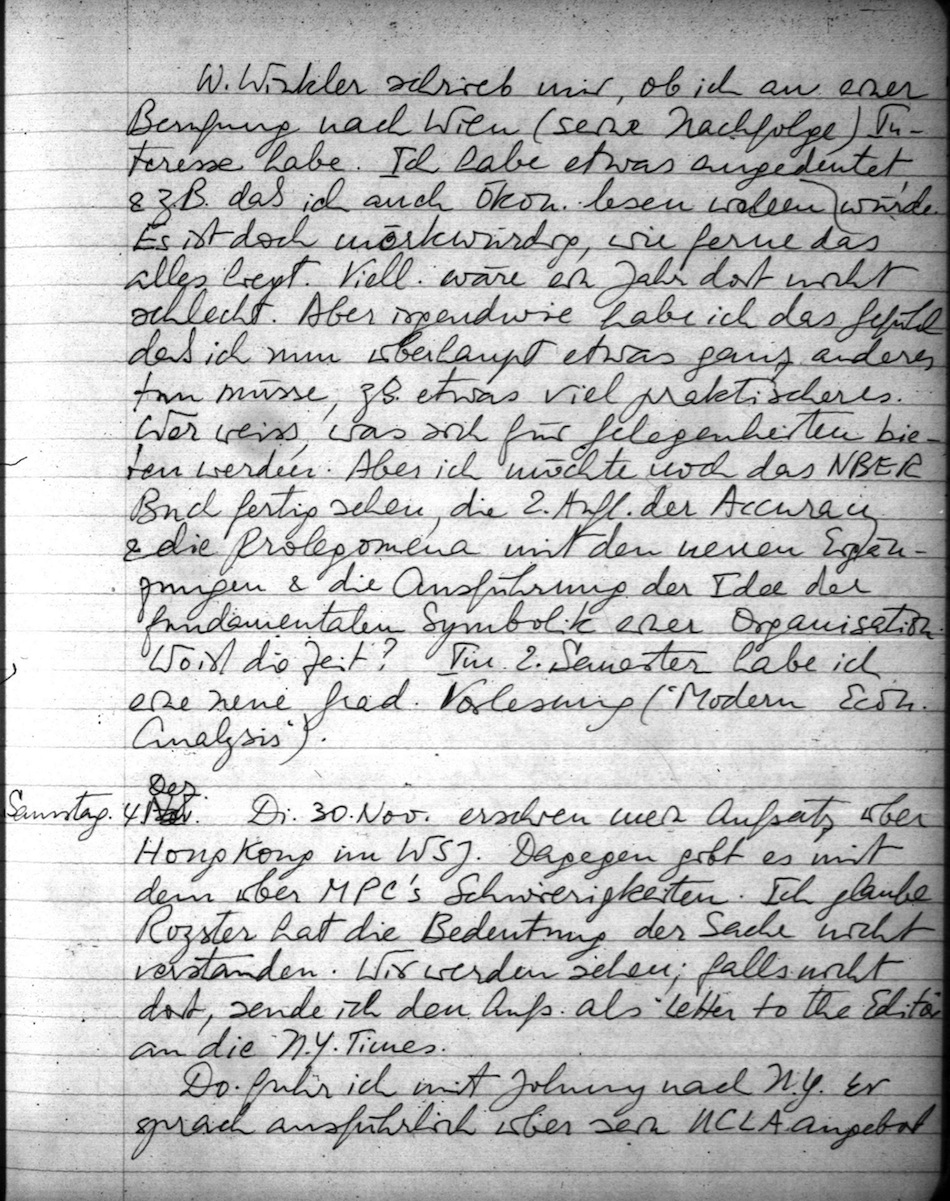 W. Winkler schrieb mir, ob ich an einer
Berufung nach Wien (seine Nachfolge) In-
teresse habe. Ich habe etwas angedeutet,
& z.B. daß ich auch Ökon. lesen wollen würde.
Es ist doch merkwürdig, wie ferne das
alles liegt. Viell. wäre ein Jahr dort nicht
schlecht. Aber irgendwie habe ich das Gefühl
daß ich nun überhaupt etwas ganz anderes
tun müsse, z.B. etwas viel praktischeres.
Wer weiss, was sich für Gelegenheiten bie-
ten werden. Aber ich möchte noch das NBER
Buch fertig sehen, die 2. Aufl. der Accuracy
& die Prolegomena mit den neuen Ergän-
zungen & die Ausführung der Idee der
fundamentalen Symbolik einer Organisation.
Wo ist die Zeit? Im 2. Semester habe ich
eine neue grad. Vorlesung ("Modern Econ.
Analysis").
Dez.
Samstag. 4. Di. 30. Nov. erschien mein Aufsatz über
Hong Kong im WSJ. Dagegen gibt es mit
dem über MPC's Schwierigkeiten. Ich glaube
Royster hat die Bedeutung der Sache nicht
verstanden. Wir werden sehen; falls nicht
dort, sende ich den Aufs. als "Letter to the Editor
an die N.Y. Times.
Do. fuhr ich mit Johnny nach N.Y. Er
sprach ausführlich über sein UCLA angebot